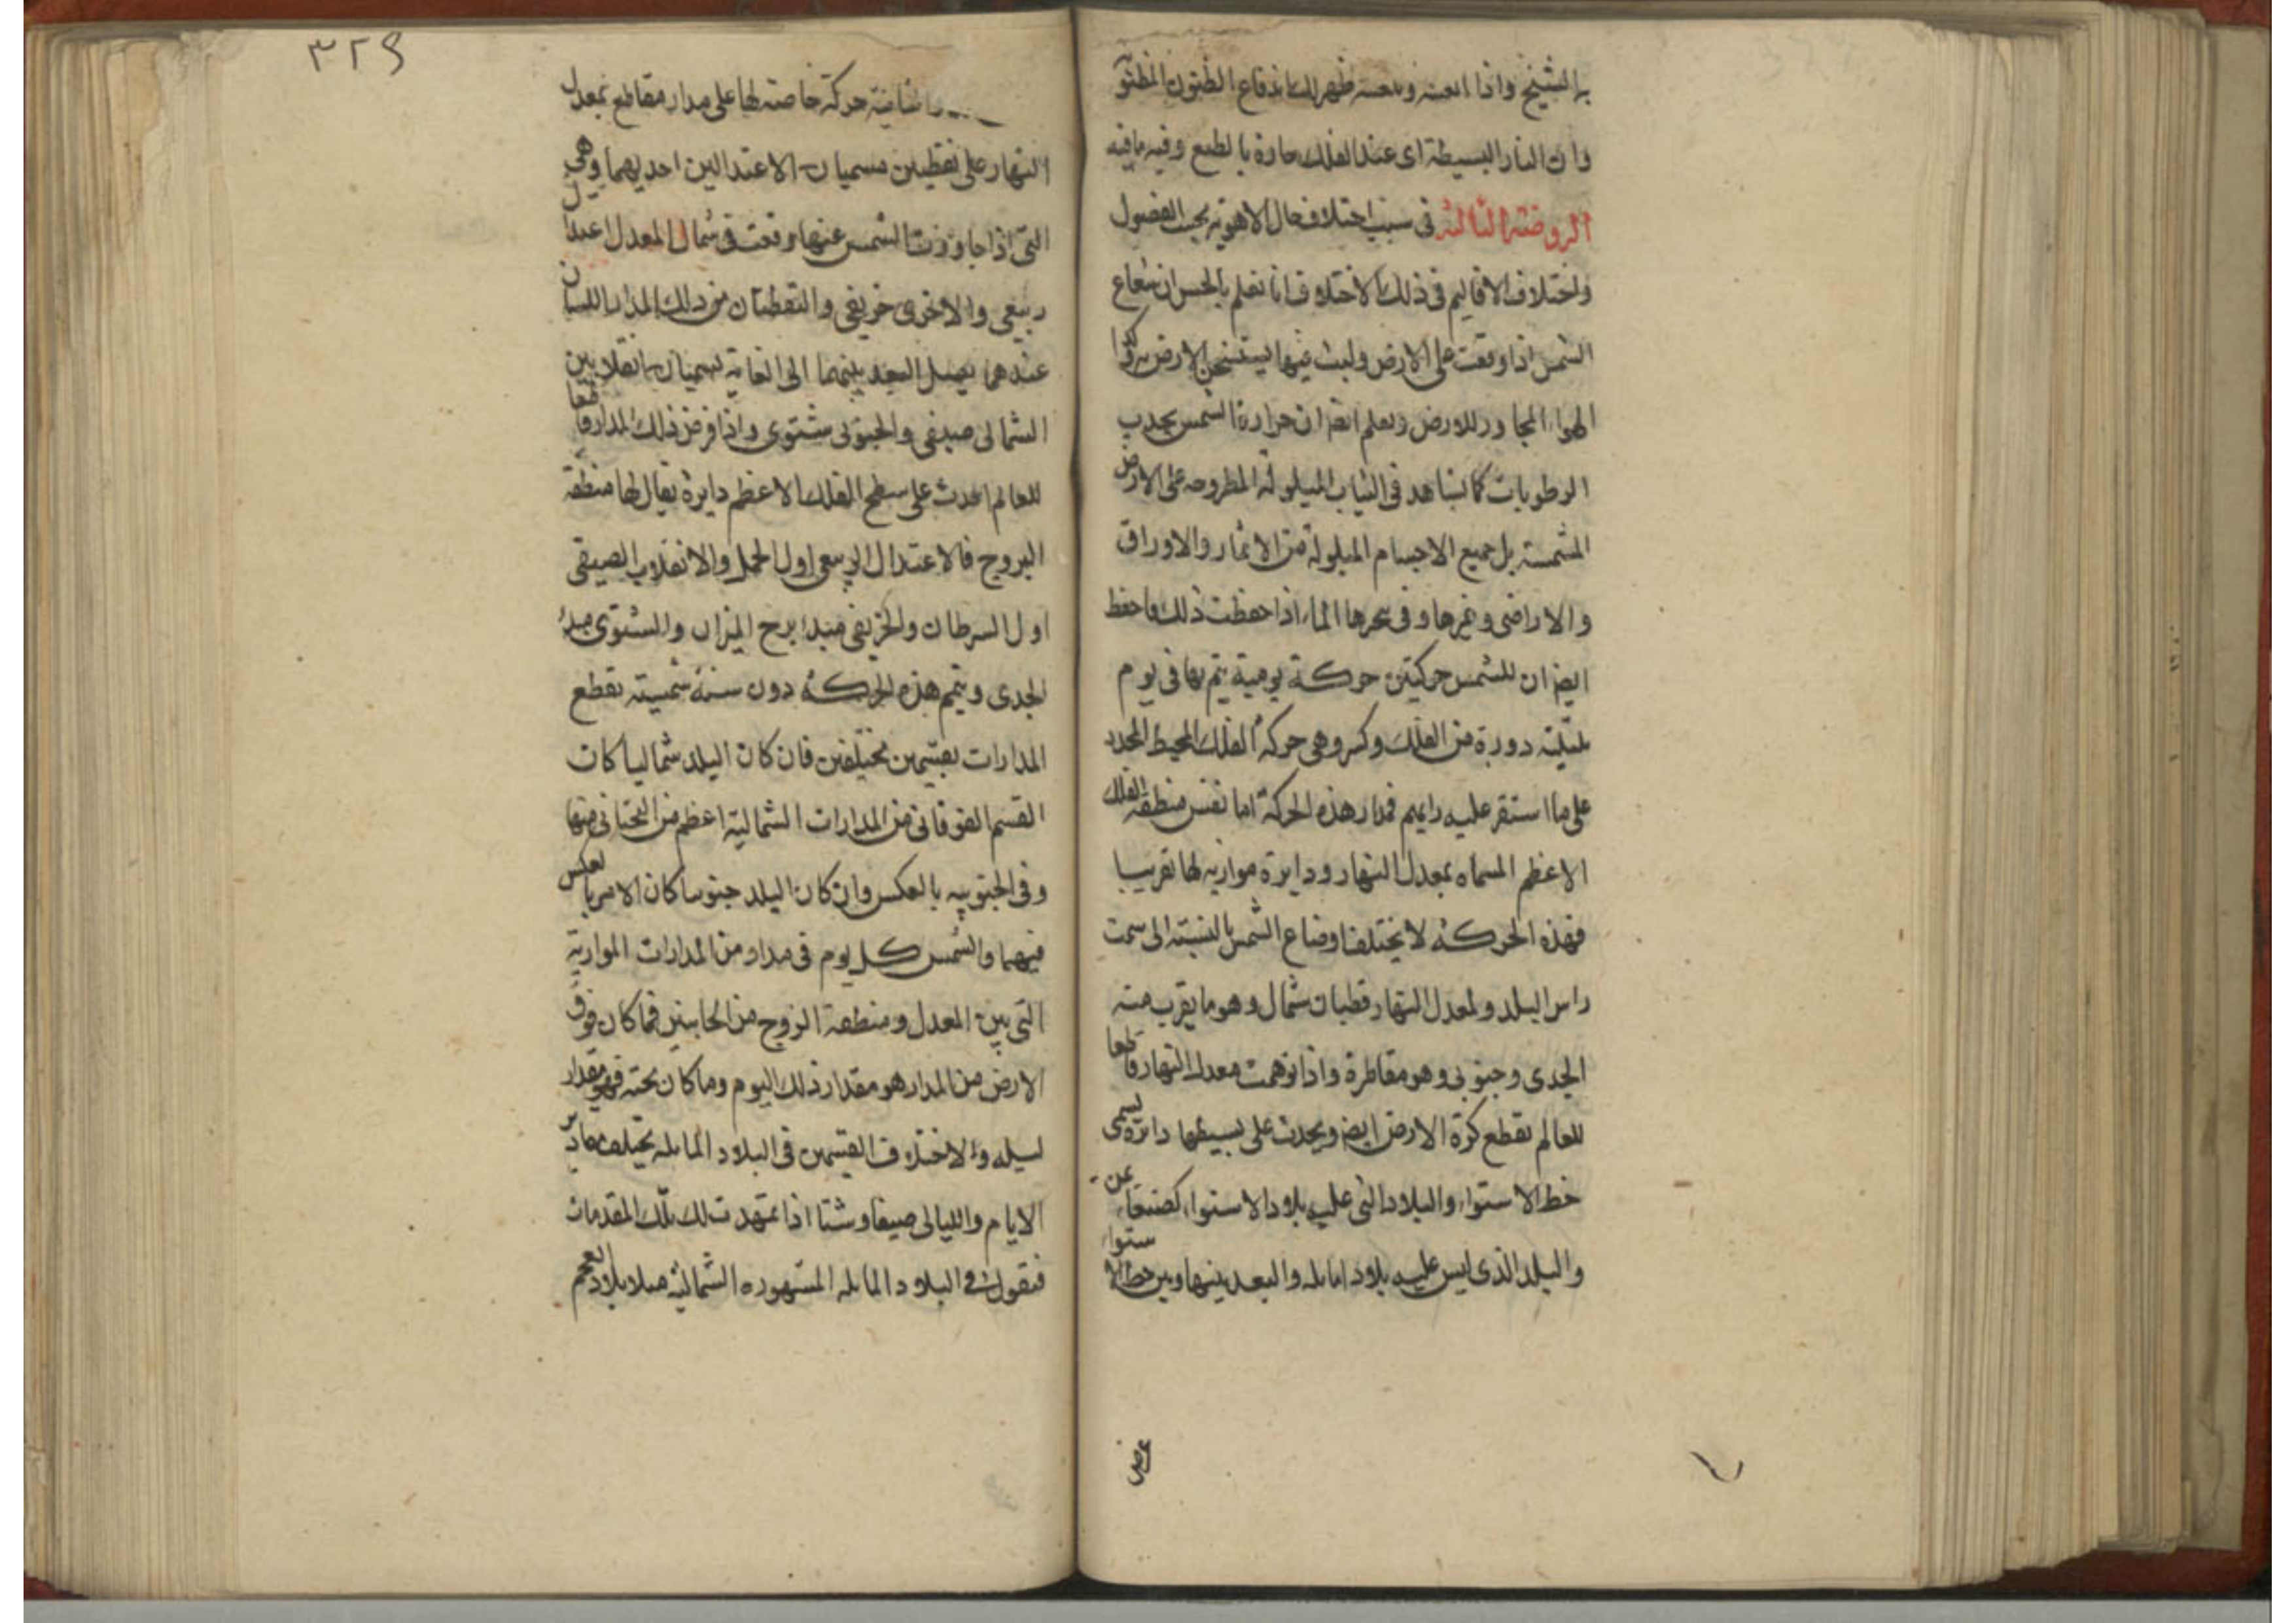 به الشيخ واذا اىعىىه وىىعىىه ظهر لك اندفاع الظنون المظنو
وان النار البسيطة اى عند الفلك حارة بالطبع وفيه ما فيه
الروضة الثالثة فى سبب اختلاف حال الاهوية بحسب الفصول
واختلاف الاقاليم فى ذلك الاختلاف انا نعلم بالحس ان شعاع
الشمس اذا وقعت على الارض ولبث فيها يستسخن الارض به وكذا
الهواء المجاور للارض ونعلم ايضا ان حرارة الشمس يجذب
الرطوبات كما نشاهد فى الثياب المبلولة المطروحة على الارض
المشمسة بل جميع الاجسام المبلولة من الاثمار والاوراق
والاراضى وغيرها وفى بحرها الماء اذا حفظت ذلك فاحفظ
ايضا ان للشمس حركتين حركة يومية يتم بها فى يوم
بليلته دورة من الفلك وكسر وهى حركة الفلك المحيط المحدد
على ما استقر عليه رايهم فمدار هذه الحركة اما نفس منطقة الفلك
الاعظم المسماه بمعدل النهار ودايرة موازيه لها تقريبا
فهذه الحركة لا يختلف اوضاع الشمس بالنسبة الى سمت
راس البلد ولمعدل النهار قطبان شمال وهو ما يقرب منه
الجدى وجنوبى وهو مقاطرة واذا توهمت معدل النهار قاطعا
للعالم تقطع كرة الارض ايضا ويحدث على بسيطها دايرة يسمى
خط الاستواء والبلاد التى عليه بلاد الاستواء كصنعاء
والبلد الذى ليس عليه بلاد مايله والبعد بينها وبين خط الاستواء
عرض
٣٢٩
الثانية حركة خاصة لها على مدار مقاطع بمعدل
النهار على نقطتين مسميان بالاعتدالين احديهما وهى
التى اذا جاوزت الشمس عنها وقعت فى شمال المعدل اعتدال
ربيعى والاخرى خريفى والنقطتان من ذلك المدار اللتان
عندهما يصل البعد بينهما الى الغاية تسميان بانقلابين
الشمالى صيفى والجنوبى شتوى واذا فرض ذلك المدار قاطعا
للعالم احدث على سطح الفلك الاعظم دايرة يقال لها منطقة
البروج فالاعتدال الربيعى اول الحمل والانقلاب الصيفى
اول السرطان والخريفى مبدا برج الميزان والشتوى مبدا
الجدى ويتم هذه الحركة دون سنة شمسية تقطع
المدارات بقسمين مختلفين فان كان البلد شماليا كان
القسم الفوقانى من المدارات الشمالية اعظم من التحتانى منها
وفى الجنوبيه بالعكس وان كان البلد جنوبيا كان الامر بالعكس
فيهما والشمس كل يوم فى مدار من المدارات الموازية
التى بين المعدل ومنطقة البروج من الجانبين فما كان فوق
الارض من المدار هو مقدار ذلك اليوم وما كان تحته فهو مقدار
ليله ولاختلاف القسمين فى البلاد المايله يختلف مقادير
الايام والليالى صيفا وشتا اذا تمهدت لك تلك المقدمات
فنقول فى البلاد المايله المشهوره الشمالية مثلا بلاد العجم